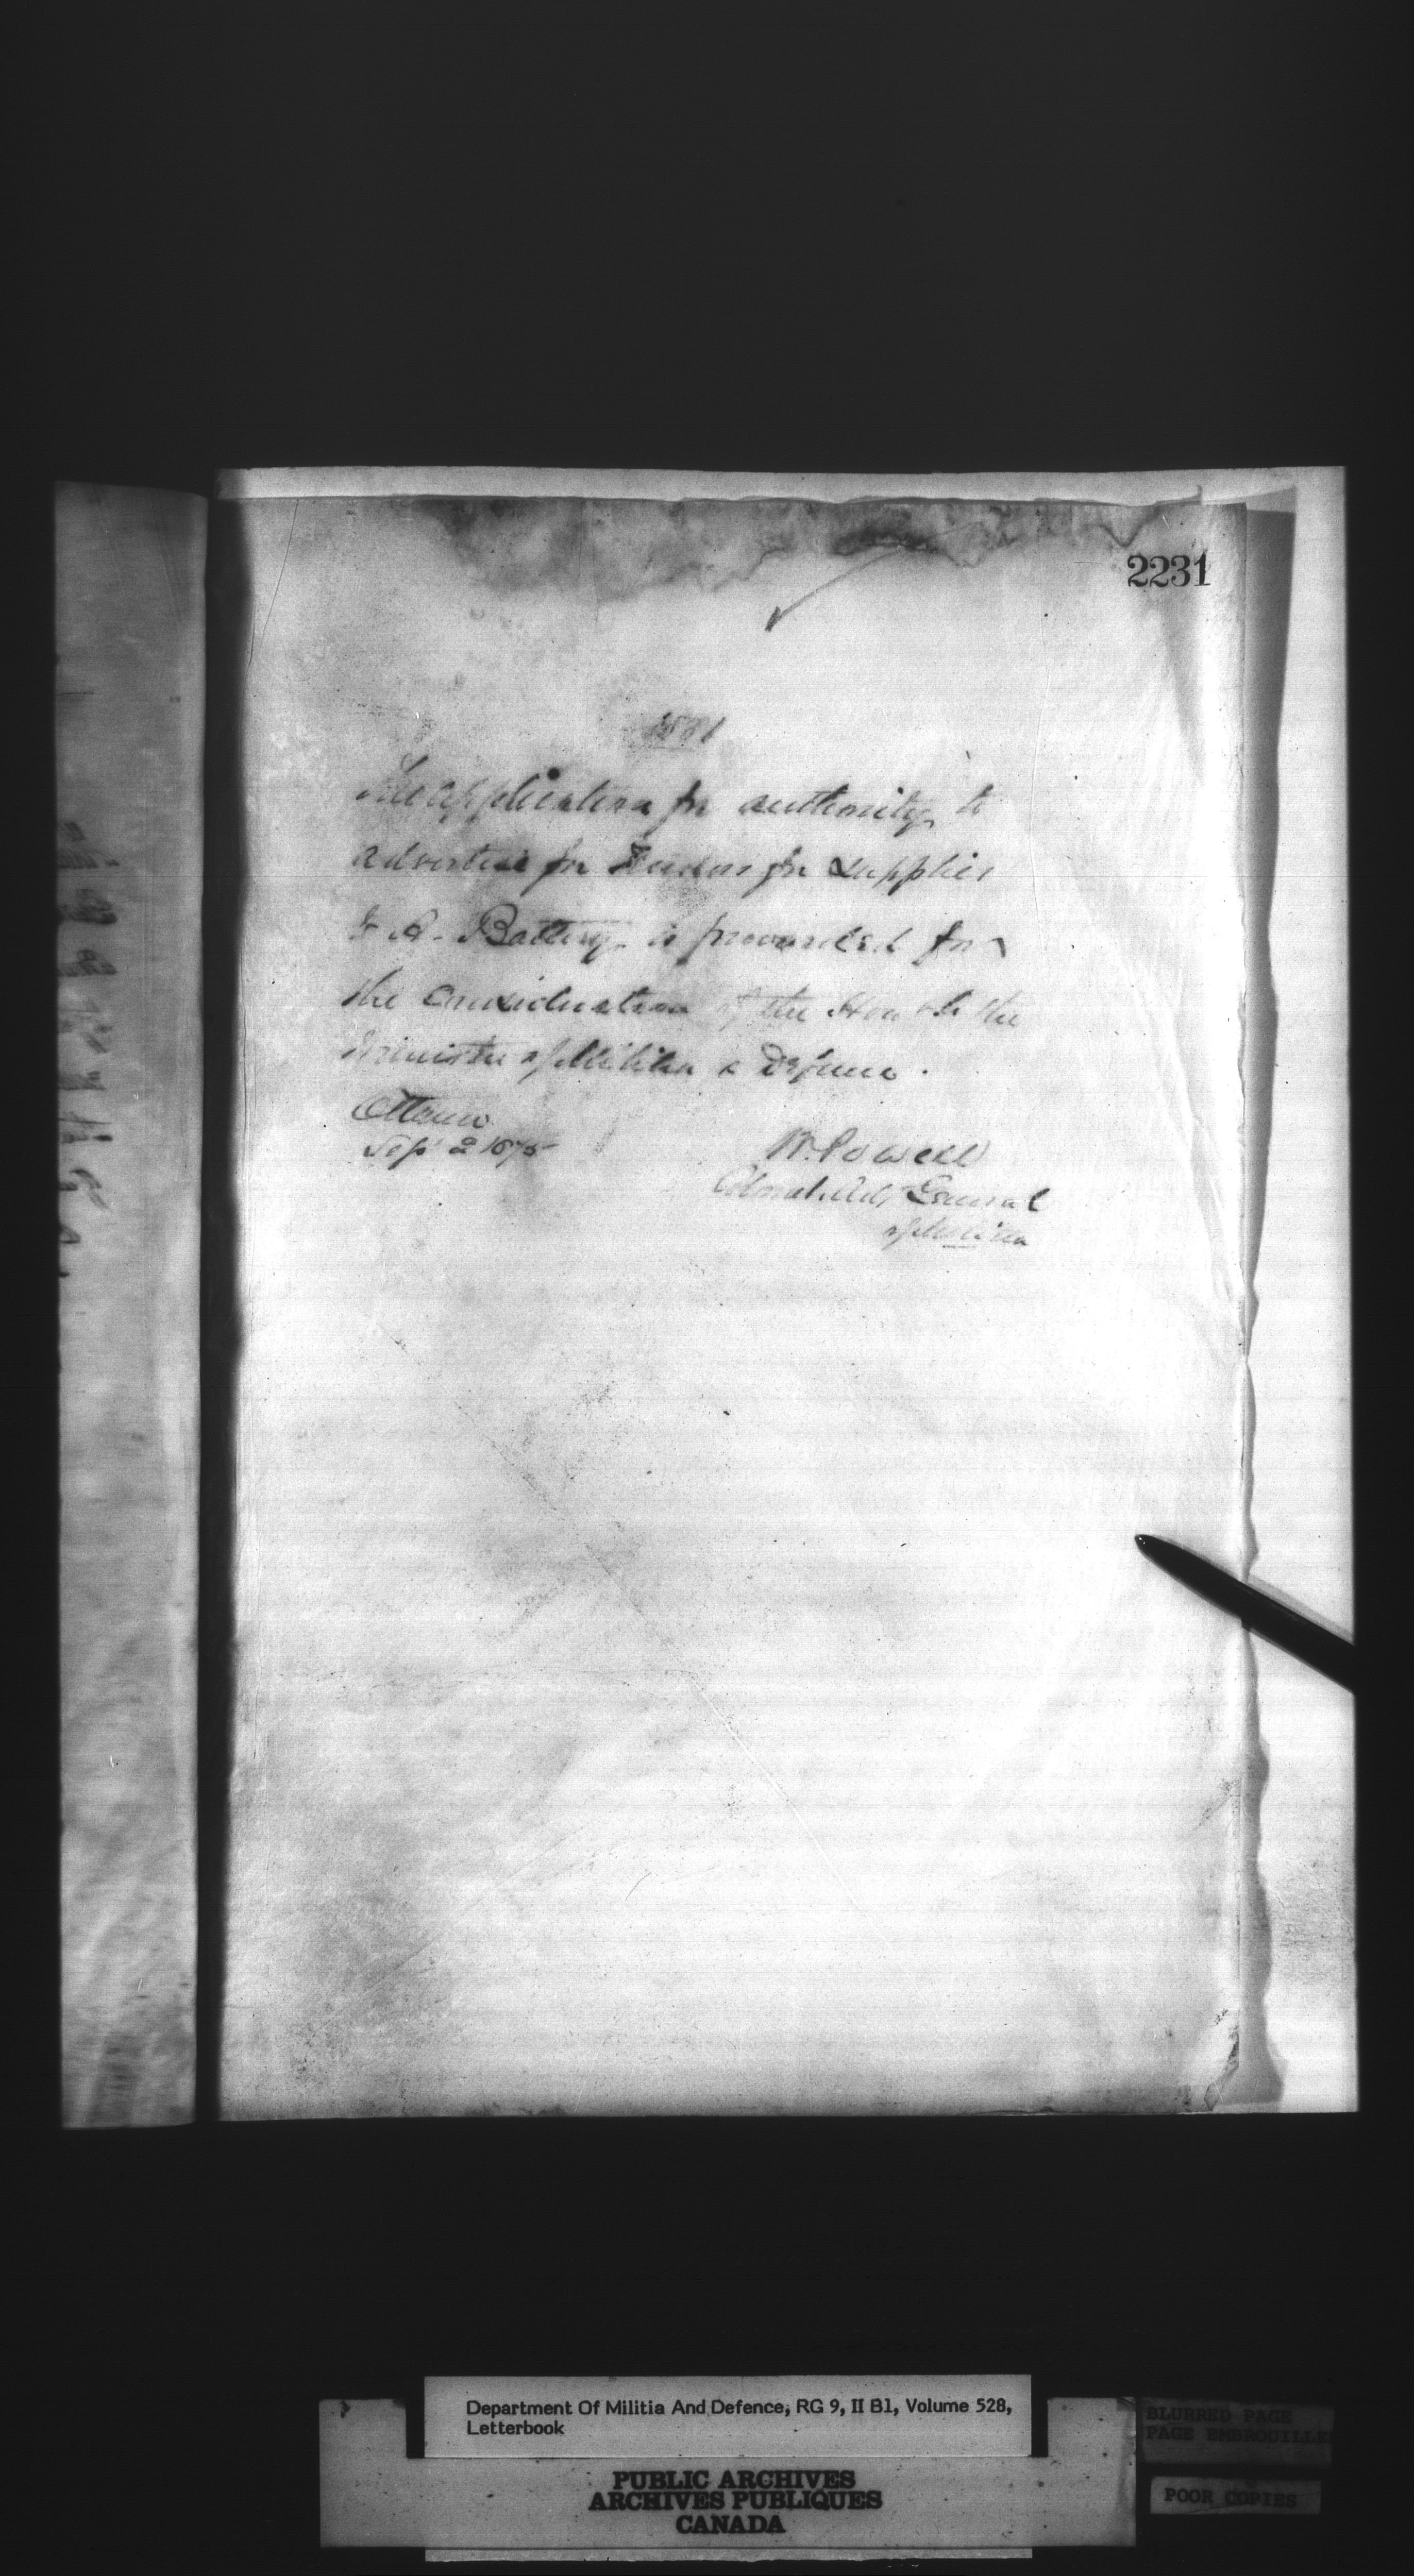 2231
The application for authority to
advertise for Tenders for supplies
A. Battery is forwarded for
the consideration of the Honble the
Minister of Militia & Defence.
Ottawa
Sept 2 1875
W. Powell
Colonel. Adj. General
of Militia
Department Of Militia And Defence, RG 9, II B1, Volume 528,
Letterbook
PUBLIC ARCHIVES
ARCHIVES PUBLIQUES
CANADA
BLURRED PAGE
PAGE EMBROUILLE
POOR COPIES